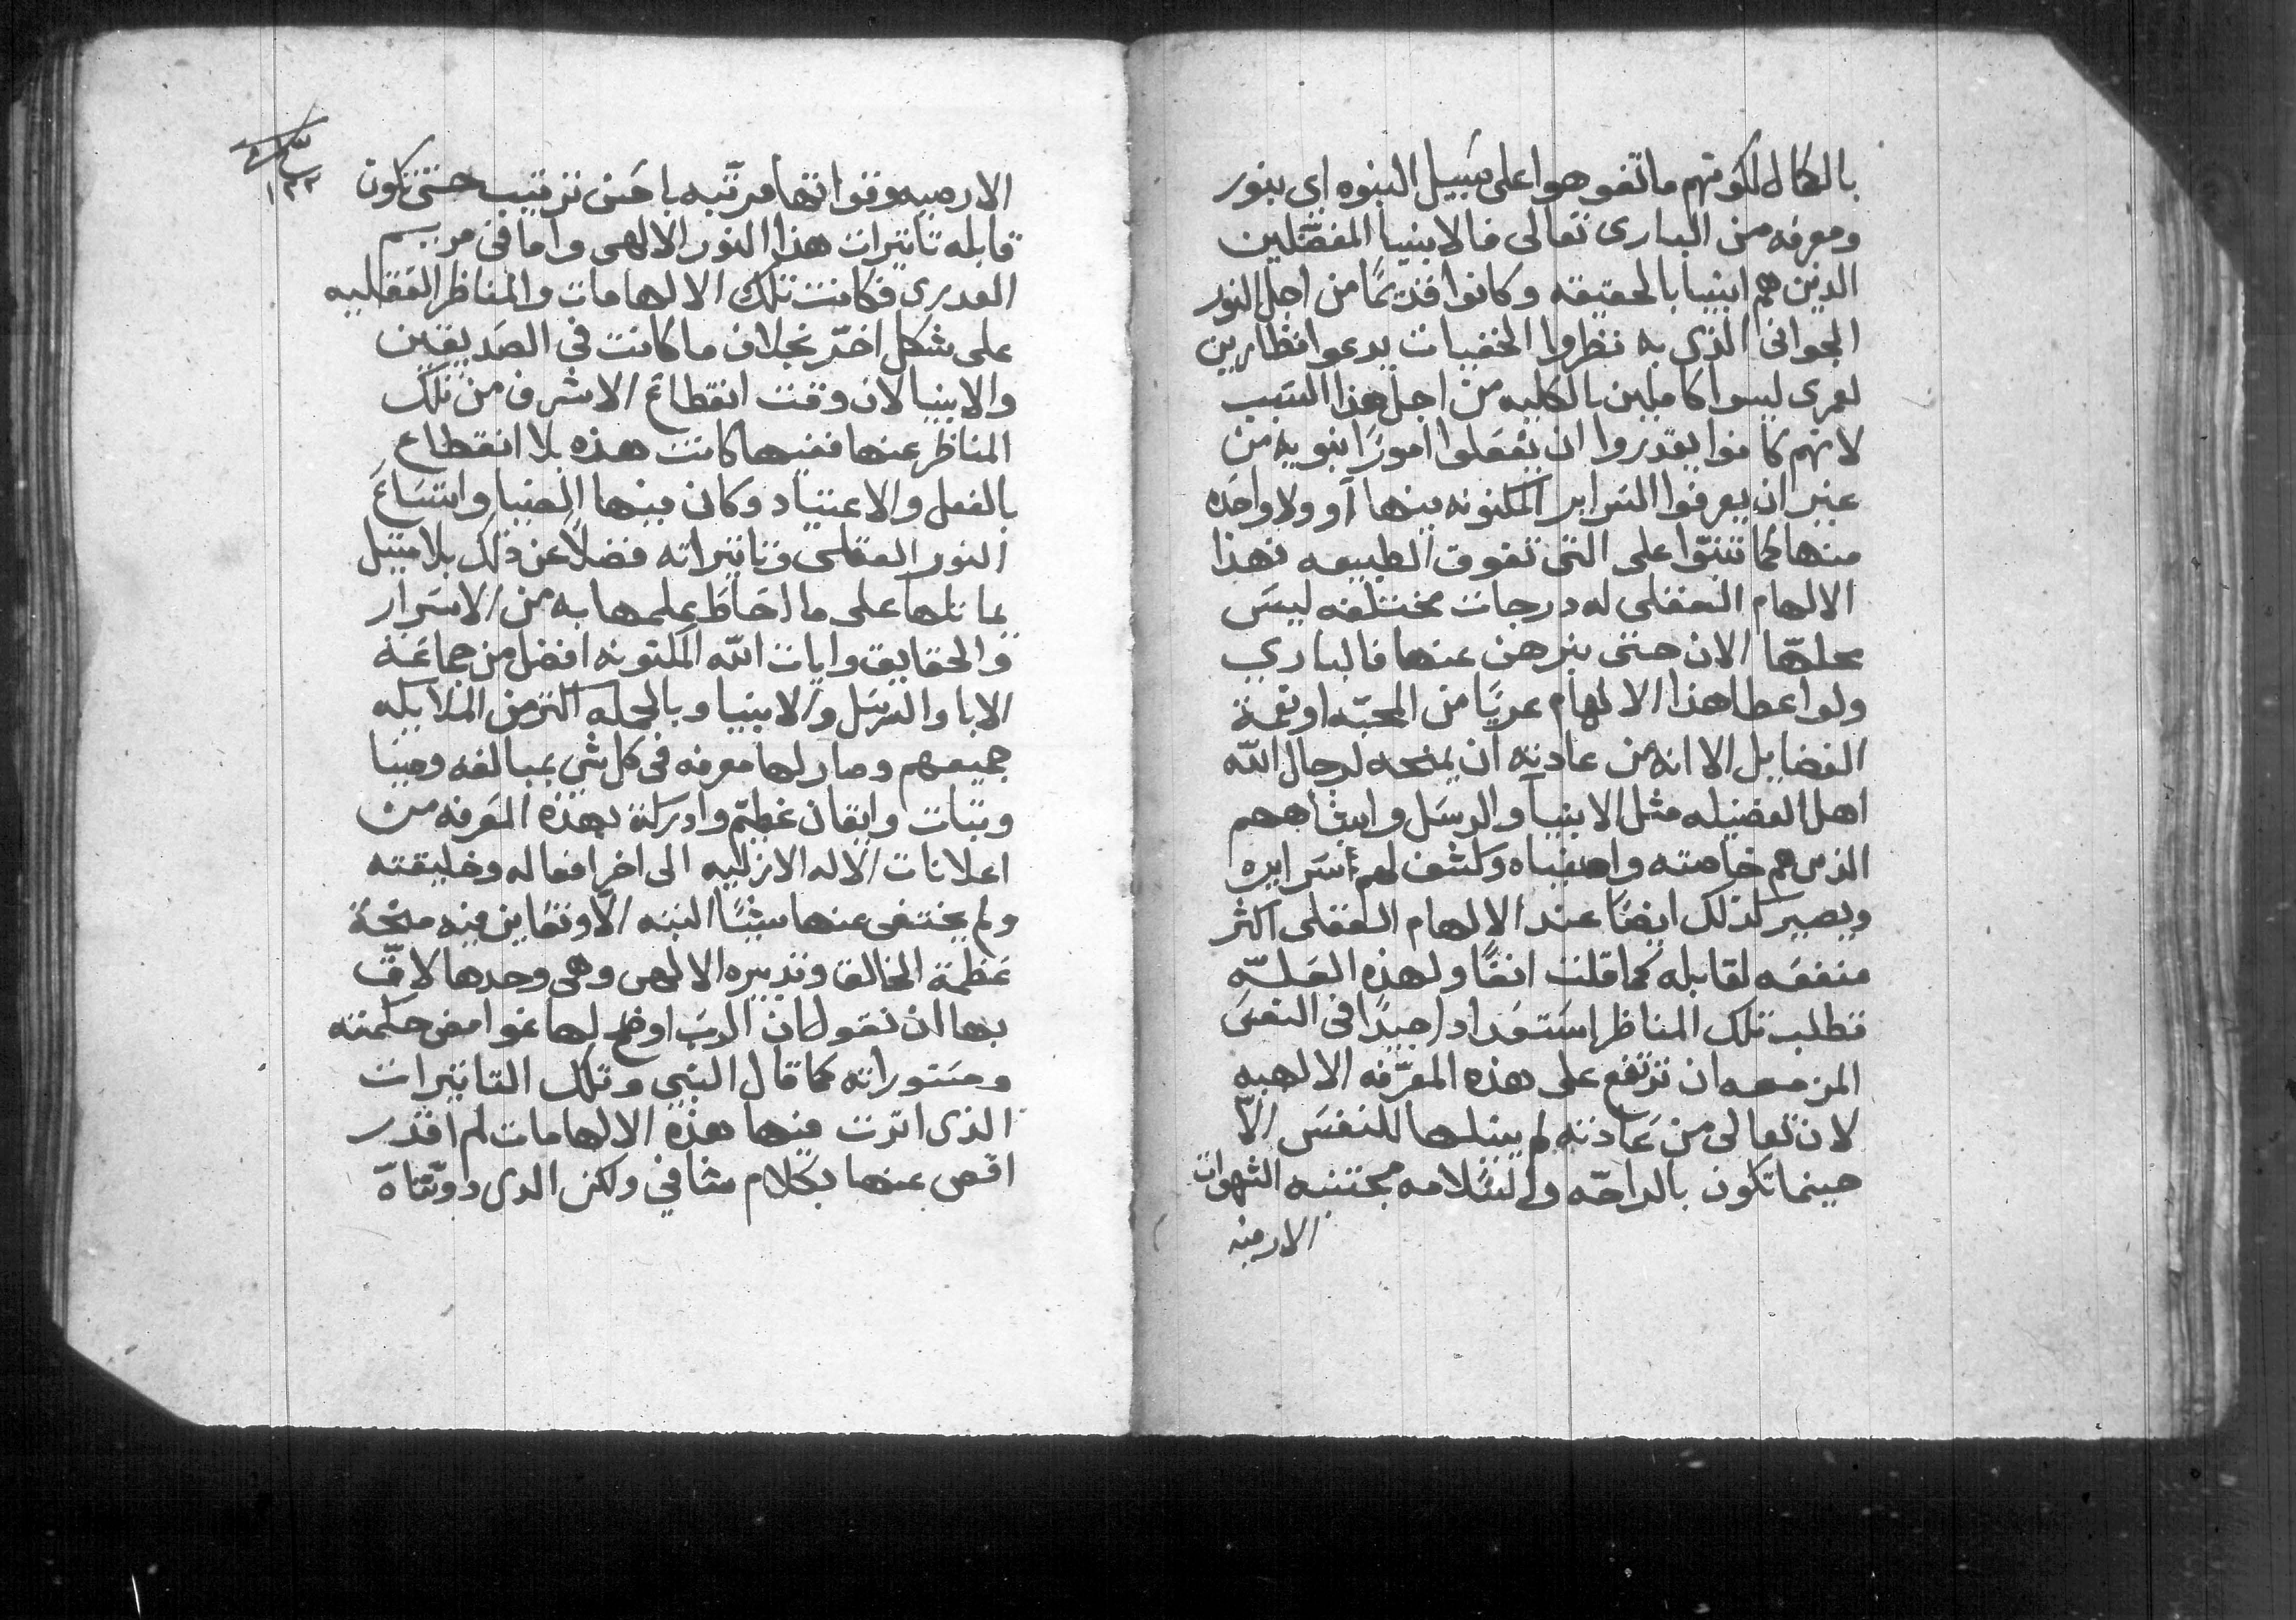 بالكمال لكونهم ما تفوهوا على سبيل النبوه اي بنور
ومعرفه من البارى تعالى فالانبيا المفضلين
الدين هم انبيا بالحقيقه وكانوا قديمًا من اجل النور
الجوانى الذى به نظروا الخفيات يدعوا نظارين
لعمرى ليسوا كاملين بالكليه من اجل هذا السبب
لانهم كانوا يقدروا ان يفعلوا امورًا نبويه من
غير ان يعرفوا السراير المكنونه بينها أو ولا واحده
منها كما تنبّوا على التى تفوق الطبيعه فهذا
الالهام العقلى له درجات مختلفه ليسَ
محلّها الان حتى نبرهن عنها فالباري
ولو اعطا هذا الالهام عريًا من المحبّه او نعمة
الفضايل الا انه من عادته ان يمنحه لرجال الله
اهل الفضيله مثل الانبيآ والرسَل واشباههم
الذىں هم خاصته واصفياه وكشف لهم اسَرايره
ويصير كذلك ايضًا عند الالهام العقلى اكثر
منفعَه لقابله كما قلت انفًا ولهذه العَلّه
تطلب تلك المناظر استعَداد جيدًا فى النفسَ
المزمعه ان ترتفع على هذه المعرّفه الالهيه
لان تعالى من عَادته لم ينيلها للنفسَ الّا
حينما تكون بالراحّه والسَلامه مجتنبه الشهوات
الارضيه
١٣٢
الارضيه وقواتها مرتّبه باحَسن ترتيب حتى تكون
قابله تاثيرات هذا النور الالهى واما فى مريم
العدرى فكانت تلك الالهامات والمناظر العَقليه
على شكل اخَر بخلاف ما كانت في الصَديقين
والانبيا لان وقت انقطاعَ الاشرف من تلك
المناظر عنها ففيها كانت هذه بلا انقطاع
بالفعل والاعتياد وكان بينها الضيا واتسَاعَ
النور العقلى وتاثيراته فضلاً عن ذلك بلا مثيل
بما نلها على ما احَاطَ علمها به من الاسَرار
والحقايق وايات الله المكنونه افضل من جماعَة
الابا والرسَل والانبيا وبالجمله اكثر من الملايكه
جميعهم وصار لها معرفه فى كل شي بمبالغه وضيا
وثبات وايقان عَظيم وادركة بهذه المعَرفه من
اعلانات الاله الازليه الى اخر افعاله وخليقته
ولم يختفى عنها شيًا البته الّا وتقاين فيه منحَة
عَظمة الخالق وتدبيره الالهى وهى وحدها لاقَ
بها ان نقول ان الربَ اوضح لها غوامض حكمته
ومسَتوراته كما قال النبي وتلك التاثيرات
الذى اثرت فيها هذه الالهامات لم اقدر
اقص عنها بكلام شافي ولكن الدى دوّناهّ